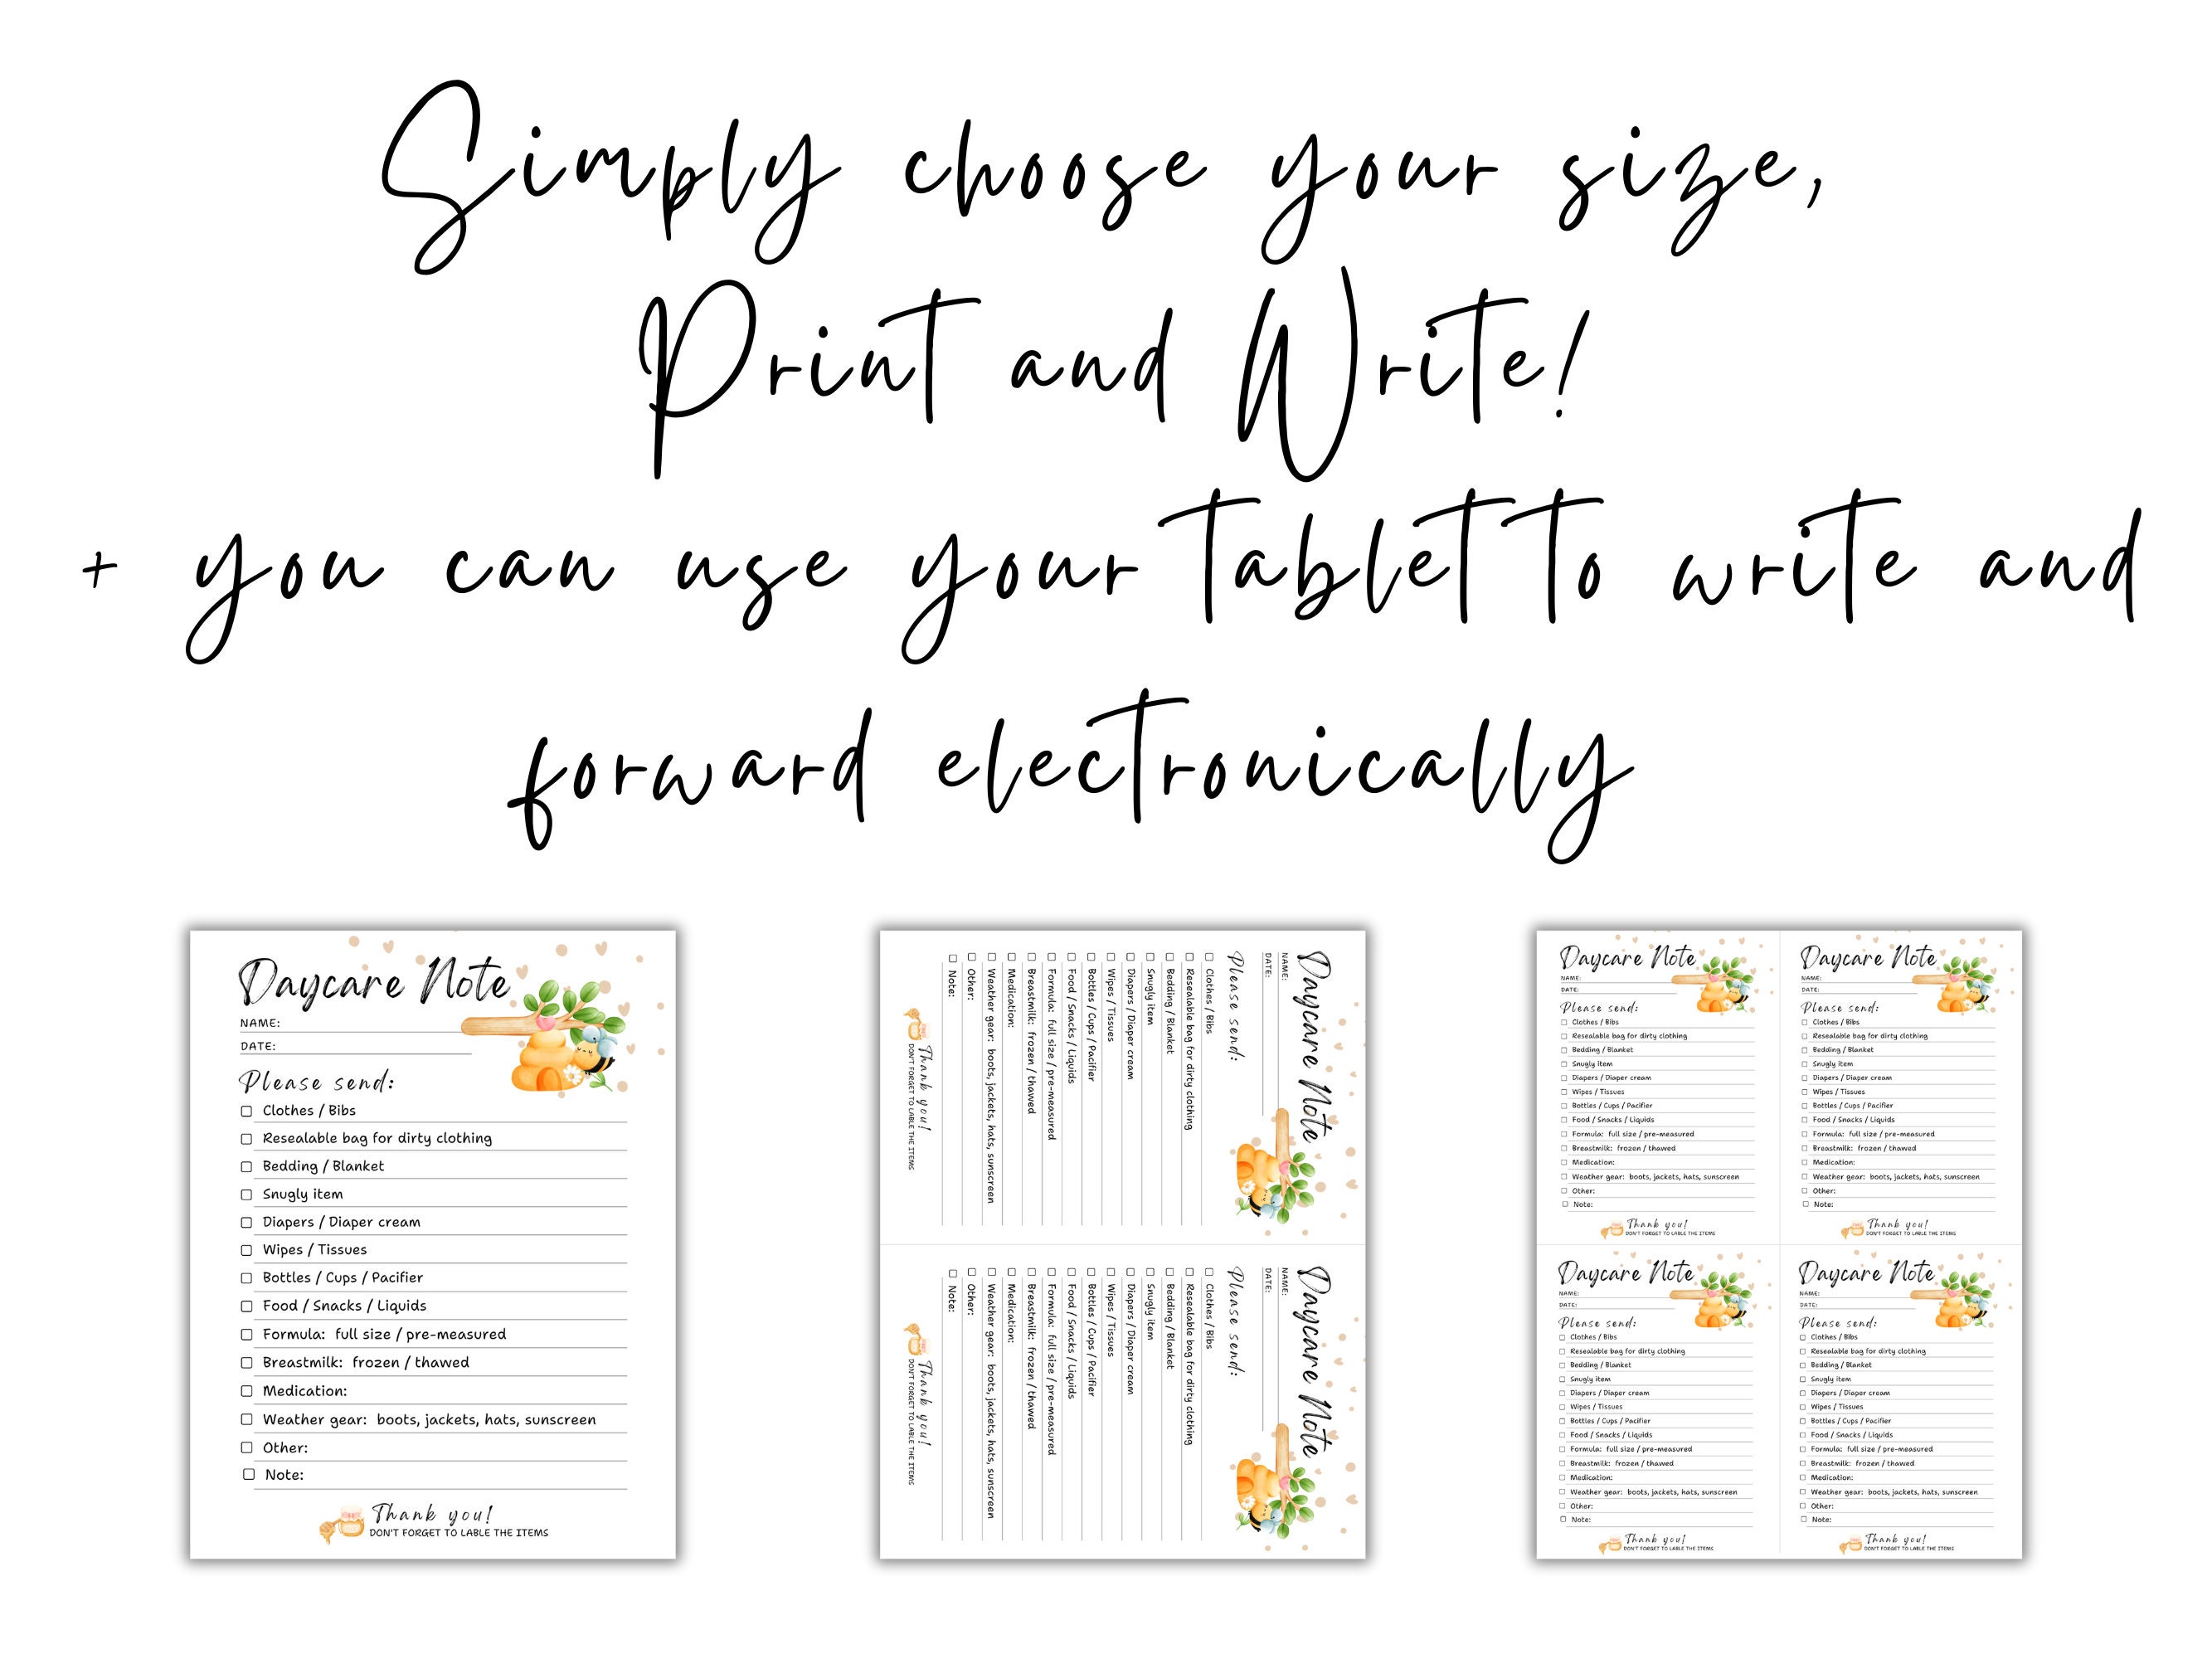 Simply choose your size,
Print and Write!
+ you can use your tablet to write and
forward electronically
Daycare Note
NAME:
DATE:
Please send:
Clothes / Bibs
Resealable bag for dirty clothing
Bedding / Blanket
Snugly item
Diapers / Diaper cream
Wipes / Tissues
Bottles / Cups / Pacifier
Food / Snacks / Liquids
Formula: full size / pre-measured
Breastmilk: frozen / thawed
Medication:
Weather gear: boots, jackets, hats, sunscreen
Other:
Note:
Thank you!
DON'T FORGET TO LABLE THE ITEMS
Daycare Note
NAME:
DATE:
Please send:
Clothes / Bibs
Resealable bag for dirty clothing
Bedding / Blanket
Snugly item
Diapers / Diaper cream
Wipes / Tissues
Bottles / Cups / Pacifier
Food / Snacks / Liquids
Formula: full size / pre-measured
Breastmilk: frozen / thawed
Medication:
Weather gear: boots, jackets, hats, sunscreen
Other:
Note:
Thank you!
DON'T FORGET TO LABLE THE ITEMS
Daycare Note
NAME:
DATE:
Please send:
Clothes / Bibs
Resealable bag for dirty clothing
Bedding / Blanket
Snugly item
Diapers / Diaper cream
Wipes / Tissues
Bottles / Cups / Pacifier
Food / Snacks / Liquids
Formula: full size / pre-measured
Breastmilk: frozen / thawed
Medication:
Weather gear: boots, jackets, hats, sunscreen
Other:
Note:
Thank you!
DON'T FORGET TO LABLE THE ITEMS
Daycare Note
NAME:
DATE:
Please send:
Clothes / Bibs
Resealable bag for dirty clothing
Bedding / Blanket
Snugly item
Diapers / Diaper cream
Wipes / Tissues
Bottles / Cups / Pacifier
Food / Snacks / Liquids
Formula: full size / pre-measured
Breastmilk: frozen / thawed
Medication:
Weather gear: boots, jackets, hats, sunscreen
Other:
Note:
Thank you!
DON'T FORGET TO LABLE THE ITEMS
Daycare Note
NAME:
DATE:
Please send:
Clothes / Bibs
Resealable bag for dirty clothing
Bedding / Blanket
Snugly item
Diapers / Diaper cream
Wipes / Tissues
Bottles / Cups / Pacifier
Food / Snacks / Liquids
Formula: full size / pre-measured
Breastmilk: frozen / thawed
Medication:
Weather gear: boots, jackets, hats, sunscreen
Other:
Note:
Thank you!
DON'T FORGET TO LABLE THE ITEMS
Daycare Note
NAME:
DATE:
Please send:
Clothes / Bibs
Resealable bag for dirty clothing
Bedding / Blanket
Snugly item
Diapers / Diaper cream
Wipes / Tissues
Bottles / Cups / Pacifier
Food / Snacks / Liquids
Formula: full size / pre-measured
Breastmilk: frozen / thawed
Medication:
Weather gear: boots, jackets, hats, sunscreen
Other:
Note:
Thank you!
DON'T FORGET TO LABLE THE ITEMS
Daycare Note
NAME:
DATE:
Please send:
Clothes / Bibs
Resealable bag for dirty clothing
Bedding / Blanket
Snugly item
Diapers / Diaper cream
Wipes / Tissues
Bottles / Cups / Pacifier
Food / Snacks / Liquids
Formula: full size / pre-measured
Breastmilk: frozen / thawed
Medication:
Weather gear: boots, jackets, hats, sunscreen
Other:
Note:
Thank you!
DON'T FORGET TO LABLE THE ITEMS